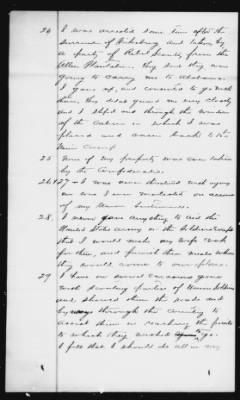 24 I was arrested some time after the
surrender of Vicksburg and taken by
a party of Rebel Scouts, from the
Allen Plantation, they said they was
going to carry me to Alabama.
I gave up, and consented to go with
them, they didnt guard me very closely
and I slipped out through the window
of the cabin in which I was
placed and came back to the
Union Camp.
25 None of my property was ever taken
by the Confederates.
26 & 27 - I was never threatened with injury
nor was I ever molested on account
of my Union Sentiments.
28. I never gave anything to aid the
United States army or the Soldiers except
that I would make my wife cook
for them, and furnish them meals when
they would come to our place.
29 I have on several occasions gone
with scouting parties of Union Soldiers
and showed them the roads and
by ways through the country to
assist them in reaching the points
to which they wished to go.
I felt that I should do all in my